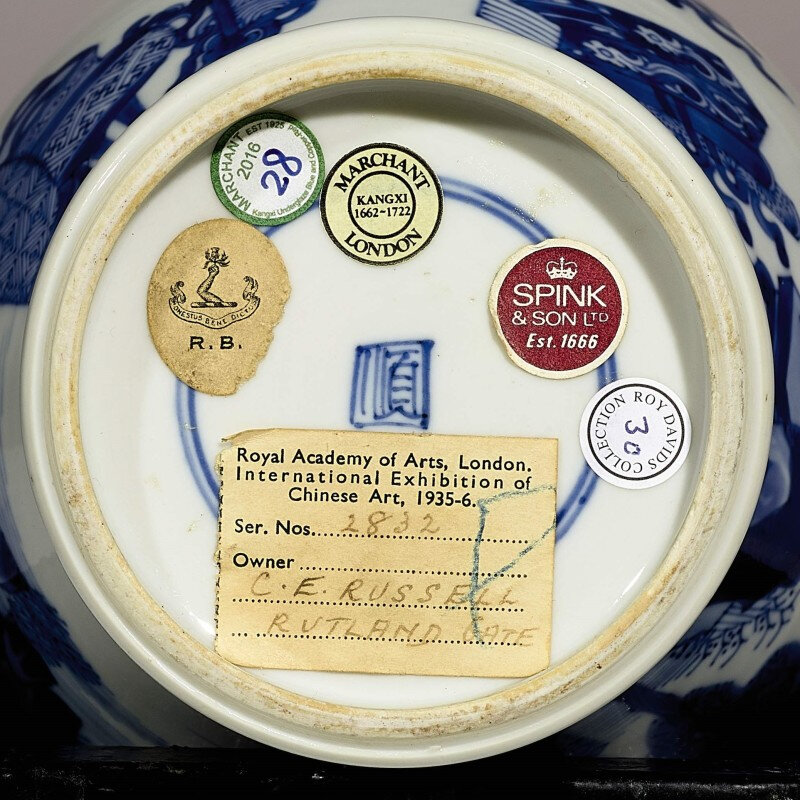 MARCHANT EST 1925
2016
28
Kangxi Underglaze Blue
MARCHANT
KANGXI
1662-1722
LONDON
BENE
R.B.
SPINK
& SON LTD
Est. 1666
COLLECTION ROY DAVIDS
30
順
Royal Academy of Arts, London.
International Exhibition of
Chinese Art, 1935-6.
Ser. Nos. 2832
Owner
C. E. RUSSELL
RUTLAND GATE